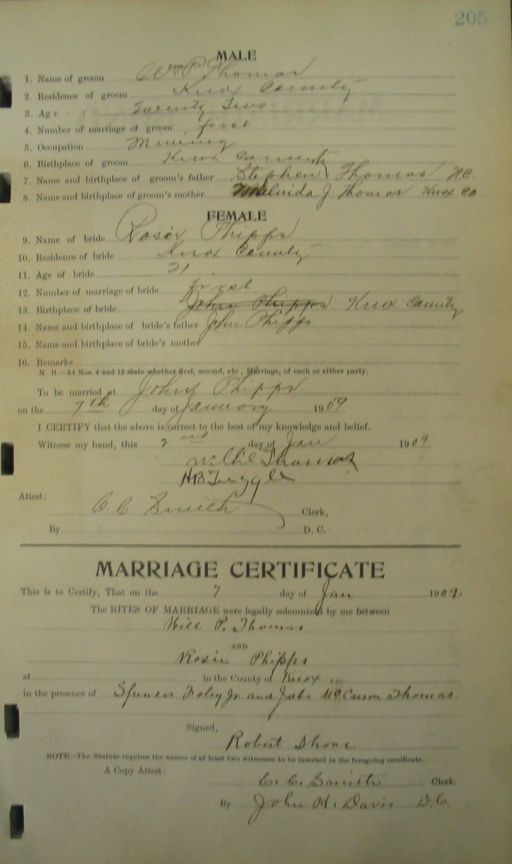 205
MALE
1. Name of groom Wm P. Thomas
2. Residence of groom Knox County
3. Age Twenty Two
4. Number of marriage of groom first
5. Occupation Mining
6. Birthplace of groom Knox County
7. Name and birthplace of groom's father Stephen Thomas N.C.
8. Name and birthplace of groom's mother Malvida J Thomas Knox Co
FEMALE
9. Name of bride Rosie Phipps
10. Residence of bride Knox County
11. Age of bride 21
12. Number of marriage of bride first
13. Birthplace of bride John Phipps Knox County
14. Name and birthplace of bride's father John Phipps
15. Name and birthplace of bride's mother
16. Remarks
N. B.—At Nos. 4 and 12 state whether first, second, etc., Marriage, of each or either party.
To be married at John Phipps
on the 7th day of January 1909
I CERTIFY that the above is correct to the best of my knowledge and belief.
Witness my hand, this 2nd day of Jan 1909
Willie Thomas
H B Tuggle
Attest:
C C Smith Clerk,
By D. C.
MARRIAGE CERTIFICATE
This is to Certify, That on the 7 day of Jan 1909
The RITES OF MARRIAGE were legally solemnized by me between
Will P. Thomas
AND
Rosie Phipps
at in the County of Knox
in the presence of Spencer Foley Jr and Jabe Thomas
Signed,
Robert Shone
NOTE—The Statute requires the names of at least two witnesses to be inserted in the foregoing certificate.
A Copy Attest:
C. C. Smith Clerk.
By John H. Davis D.C.